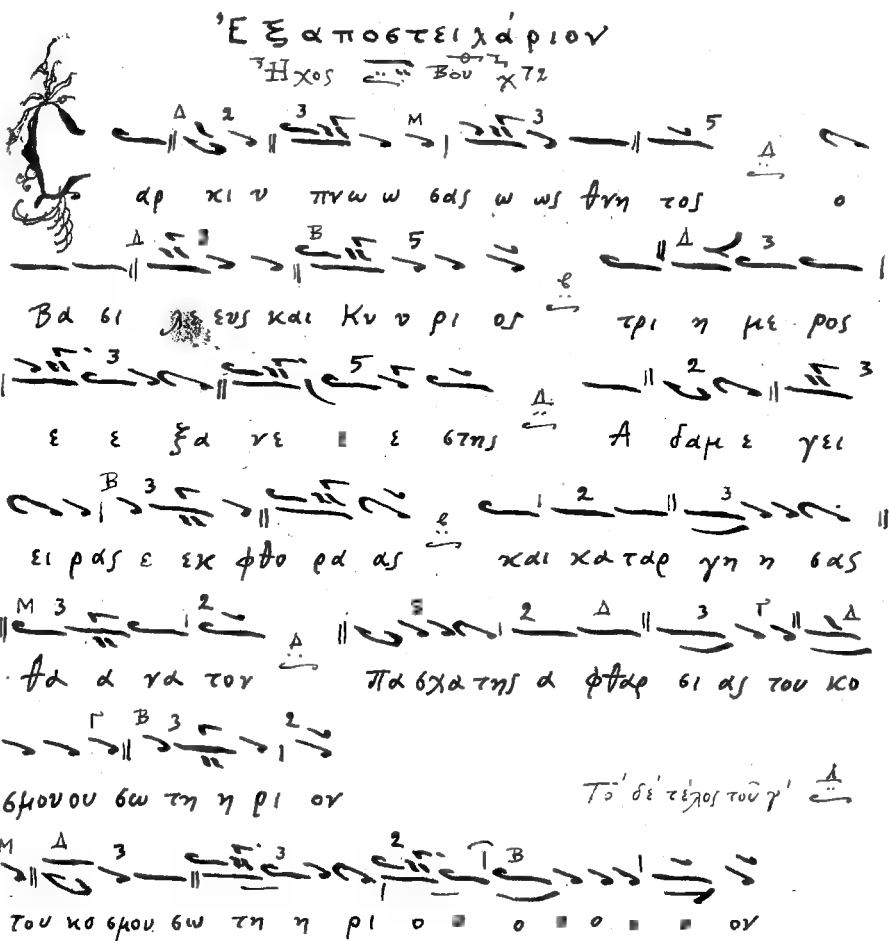 Ἐξαποστειλάριον
Ἦχος Βου χ 72
αρ κι υ πνω ω σας ω ως θνη τος ο
Βα σι λε ευς και Κυ υ ρι ος τρι η με ρος
ε ε ξα νε ε στης Α δαμ ε γει
ει ρας ε εκ φθο ρα ας και κα ταρ γη η σας
θα α να τον Πα σχα της α φθαρ σι ας του κο
σμου ου σω τη η ρι ον
Τὸ δὲ τέλος τοῦ γ'
του κο σμου σω τη η ρι ο ο ο ον